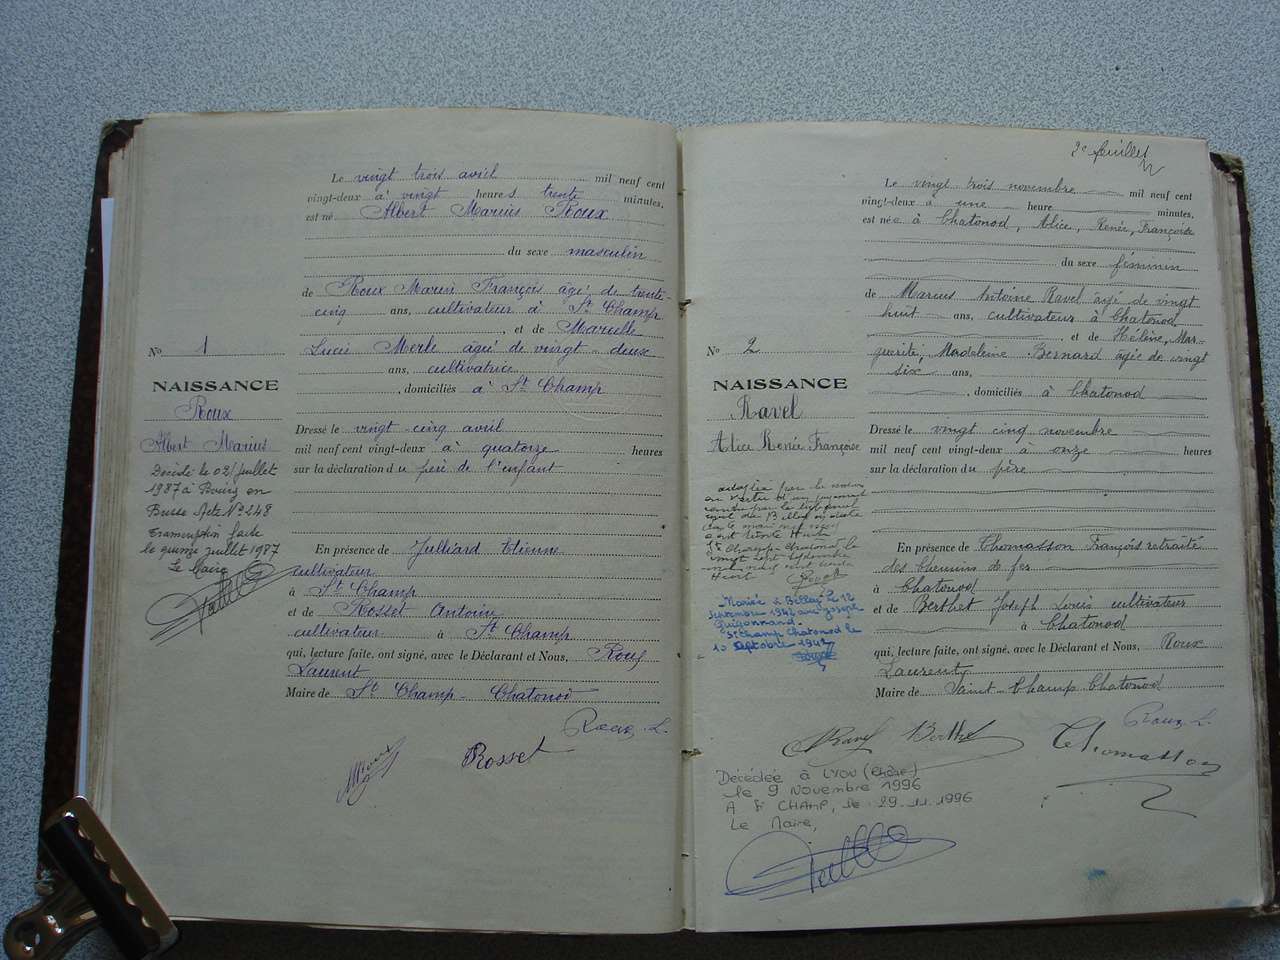 Le vingt trois avril mil neuf cent
vingt-deux à vingt heures trente minutes,
est né Albert Marius Roux
du sexe masculin
de Roux Marius François âgé de trente-
cinq ans, cultivateur à St Champ
, et de Marcelle
Lucie Merle âgée de vingt-deux
ans, cultivatrice
, domiciliés à St Champ
No 1
NAISSANCE
Roux
Albert Marius
Décédé le 02 juillet
1987 à Bourg en
Bresse Acte N° 248
Transcription faite
le quinze juillet 1987
Le Maire
Dressé le vingt-cinq avril
mil neuf cent vingt-deux à quatorze heures
sur la déclaration du père de l'enfant
En présence de Julliard Etienne
cultivateur
à St Champ
et de Rosset Antoine
cultivateur à St Champ
qui, lecture faite, ont signé, avec le Déclarant et Nous, Roux
Laurent
Maire de St Champ-Chatonod
Roux L.
Rosset
2e feuillet
Le vingt trois novembre mil neuf cent
vingt-deux à une heure minutes,
est née à Chatonod, Alice, Renée, Françoise
du sexe féminin
de Marius Antoine Ravel âgé de vingt
huit ans, cultivateur à Chatonod
, et de Hélène, Mar-
guerite, Madeleine Bernard âgée de vingt
six ans,
, domiciliés à Chatonod
No 2
NAISSANCE
Ravel
Alice Renée Françoise
adoptée par la nation
en vertu d'un jugement
rendu par le tribunal
civil de Belley
St Champ-Chatonod le
vingt sept septembre
mil neuf cent trente
huit
Mariée à Belley le 12
1942 avec Joseph
Guigonnand
St Champ Chatonod le
1942
Dressé le vingt cinq novembre
mil neuf cent vingt-deux à onze heures
sur la déclaration du père
En présence de Thomasson François retraité
des chemins de fer
à Chatonod
et de Berthet Joseph Louis cultivateur
à Chatonod
qui, lecture faite, ont signé, avec le Déclarant et Nous, Roux
Laurent
Maire de Saint-Champ Chatonod
Roux L.
Ravel Berthet Thomasson
Décédée à LYON (Rhône)
le 9 Novembre 1996
A St CHAMP, le 29.11.1996
Le Maire,